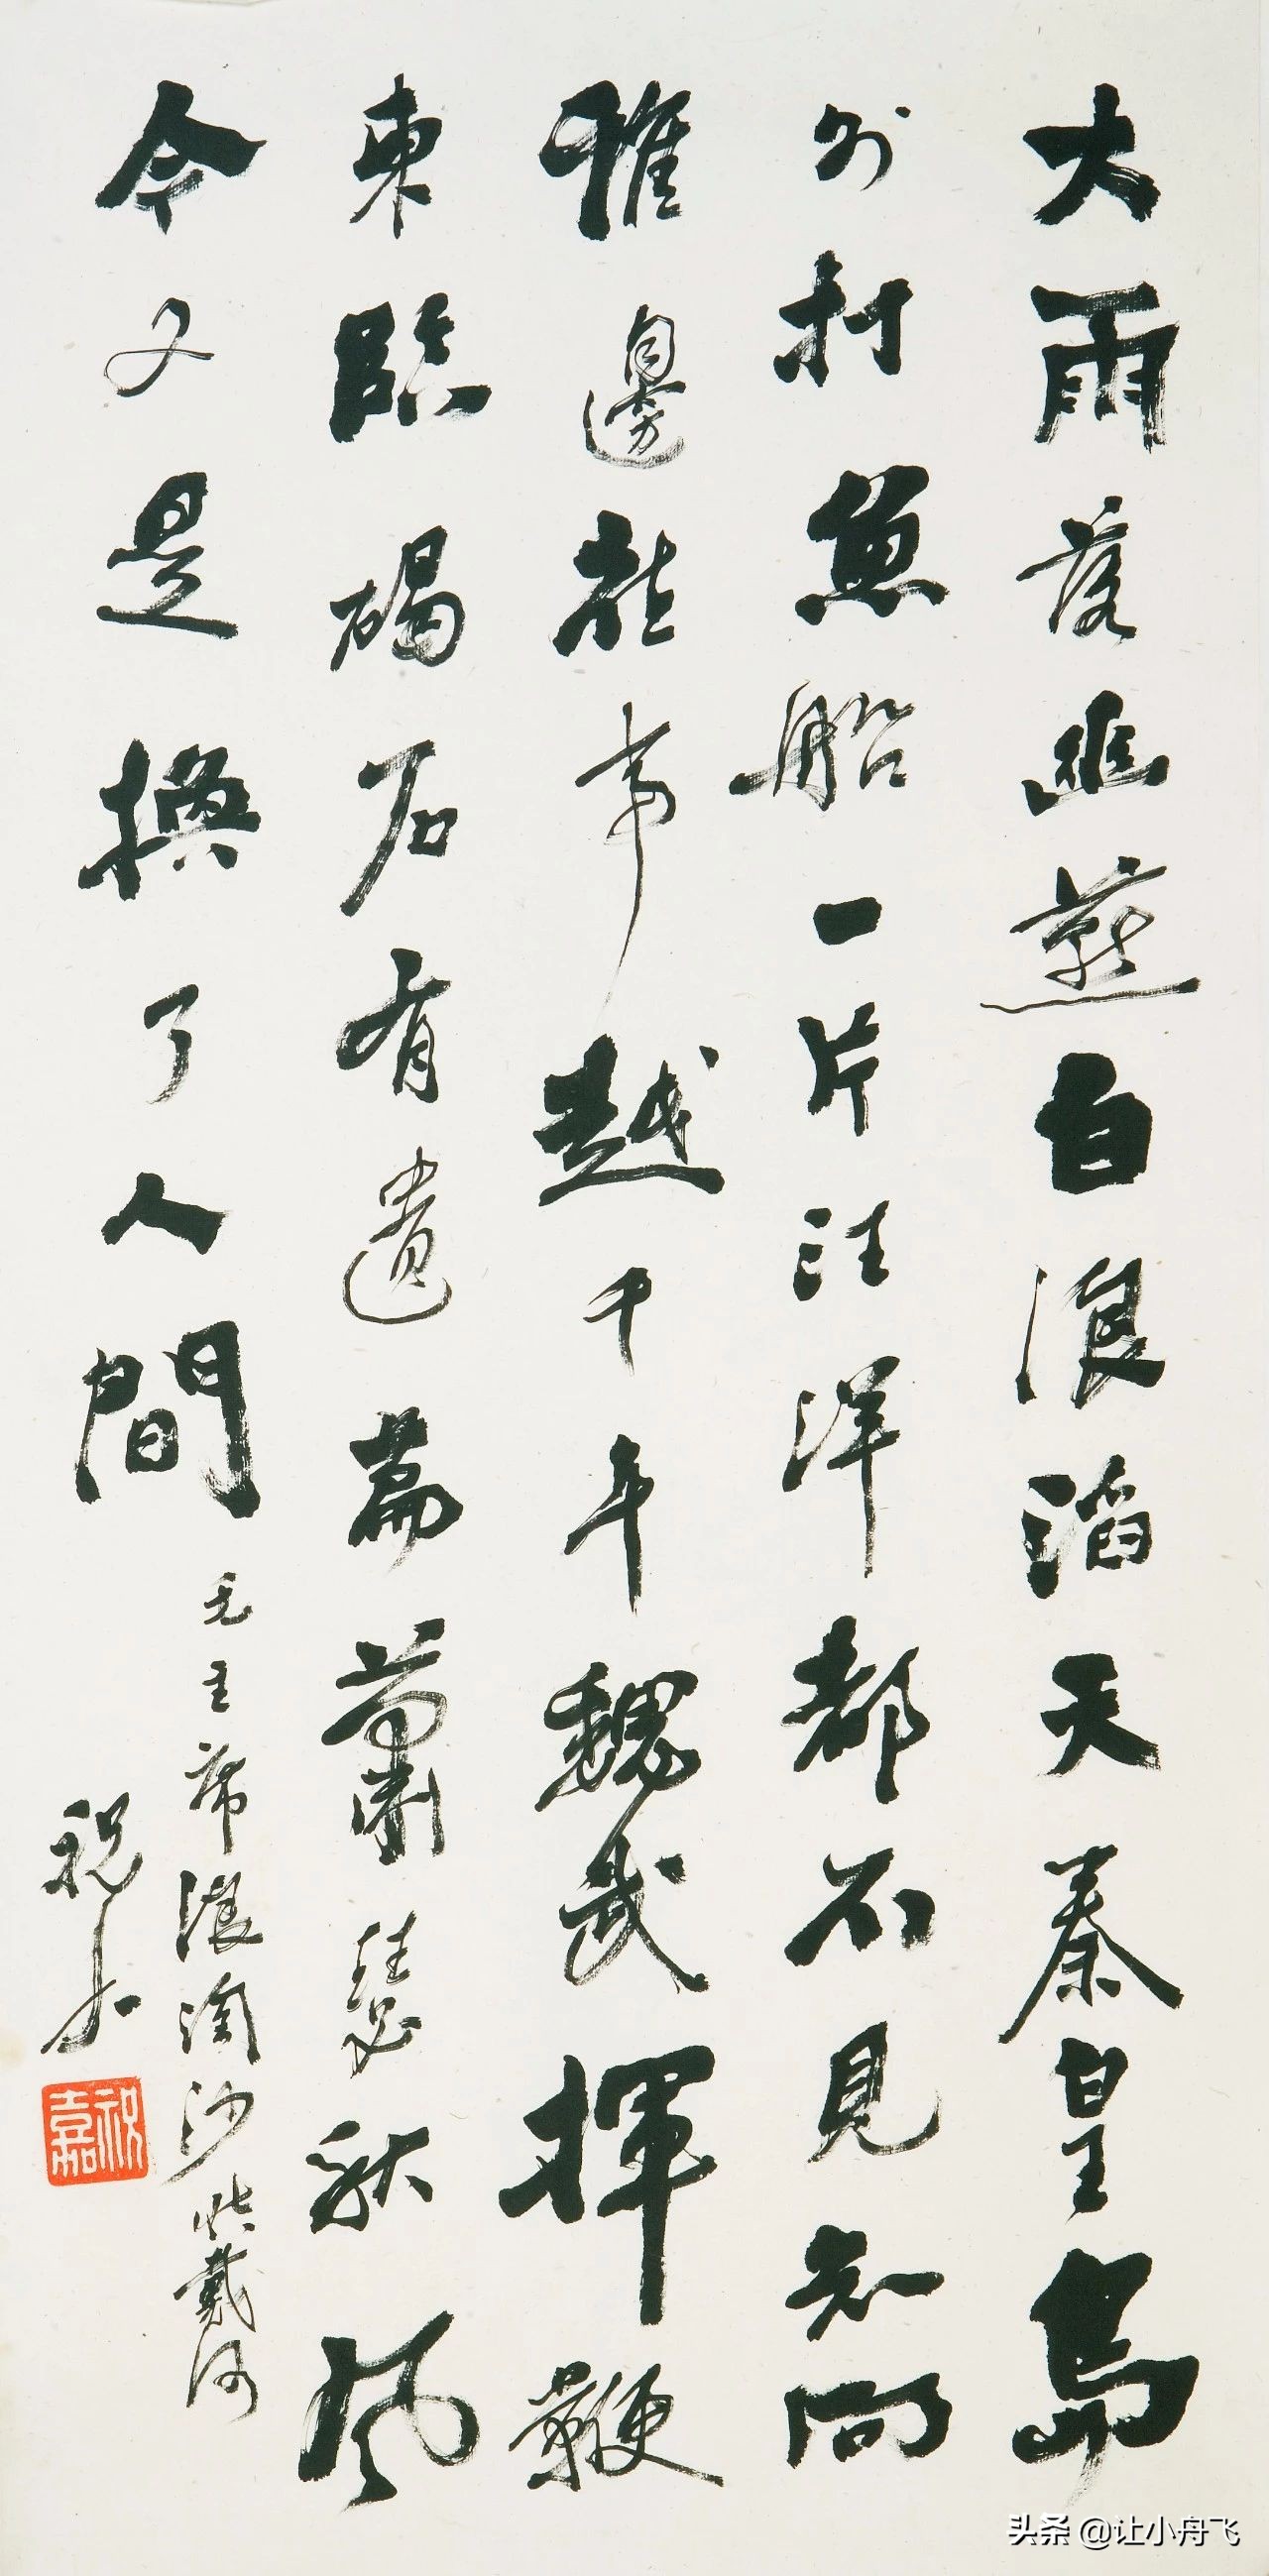 大雨落幽燕白浪滔天秦皇島
外打魚船一片汪洋都不見知向
誰邊事越千年魏武揮鞭
東臨碣石有遺篇蕭瑟秋風
今又是換了人間
毛主席浪淘沙北戴河
祝嘉
祝嘉
头条 @让小舟飞